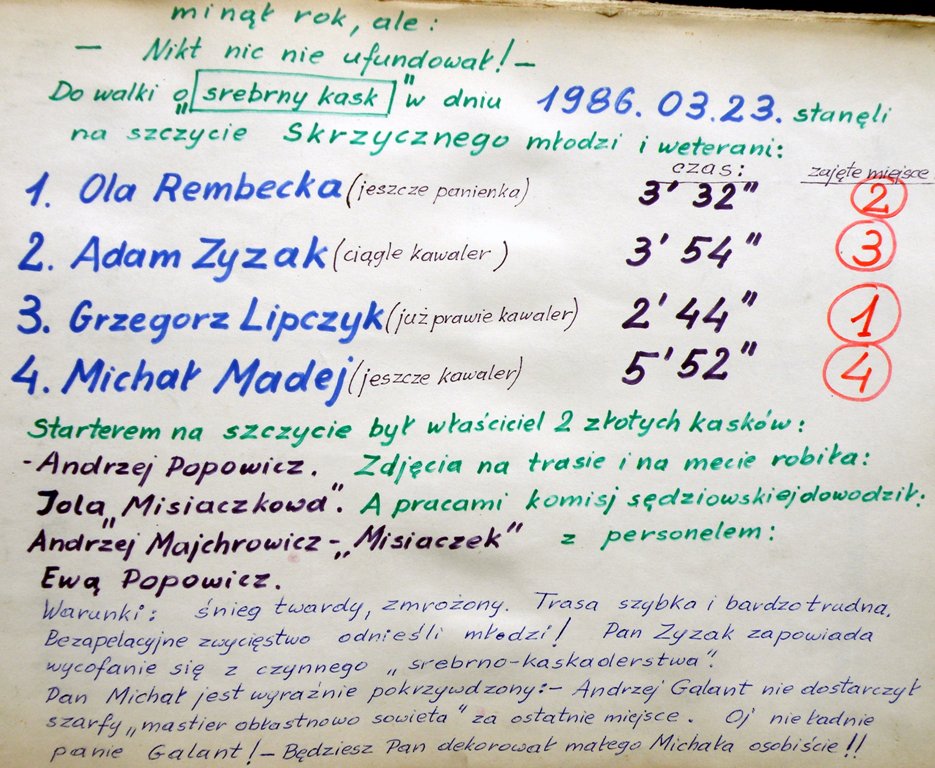 minął rok, ale:
— Nikt nic nie ufundował! —
Do walki o „srebrny kask" w dniu 1986. 03.23. stanęli
na szczycie Skrzycznego młodzi i weterani:
czas: zajęte miejsce
1. Ola Rembecka (jeszcze panienka) 3' 32" 2
2. Adam Zyzak (ciągle kawaler) 3' 54" 3
3. Grzegorz Lipczyk (już prawie kawaler) 2' 44" 1
4. Michał Madej (jeszcze kawaler) 5' 52" 4
Starterem na szczycie był właściciel 2 złotych kasków:
- Andrzej Popowicz. Zdjęcia na trasie i na mecie robiła:
Jola „Misiaczkowa". A pracami komisj sędziowskiej dowodził:
Andrzej Majchrowicz - „Misiaczek" z personelem:
Ewą Popowicz.
Warunki: śnieg twardy, zmrożony. Trasa szybka i bardzo trudna.
Bezapelacyjne zwycięstwo odnieśli młodzi! Pan Zyzak zapowiada
wycofanie się z czynnego „srebrno-kaskaderstwa".
Pan Michał jest wyraźnie pokrzywdzony: - Andrzej Galant nie dostarczył
szarfy „mastier obłastnowo sowieta" za ostatnie miejsce. Oj nieładnie
panie Galant! - Będziesz Pan dekorował małego Michała osobiście!!